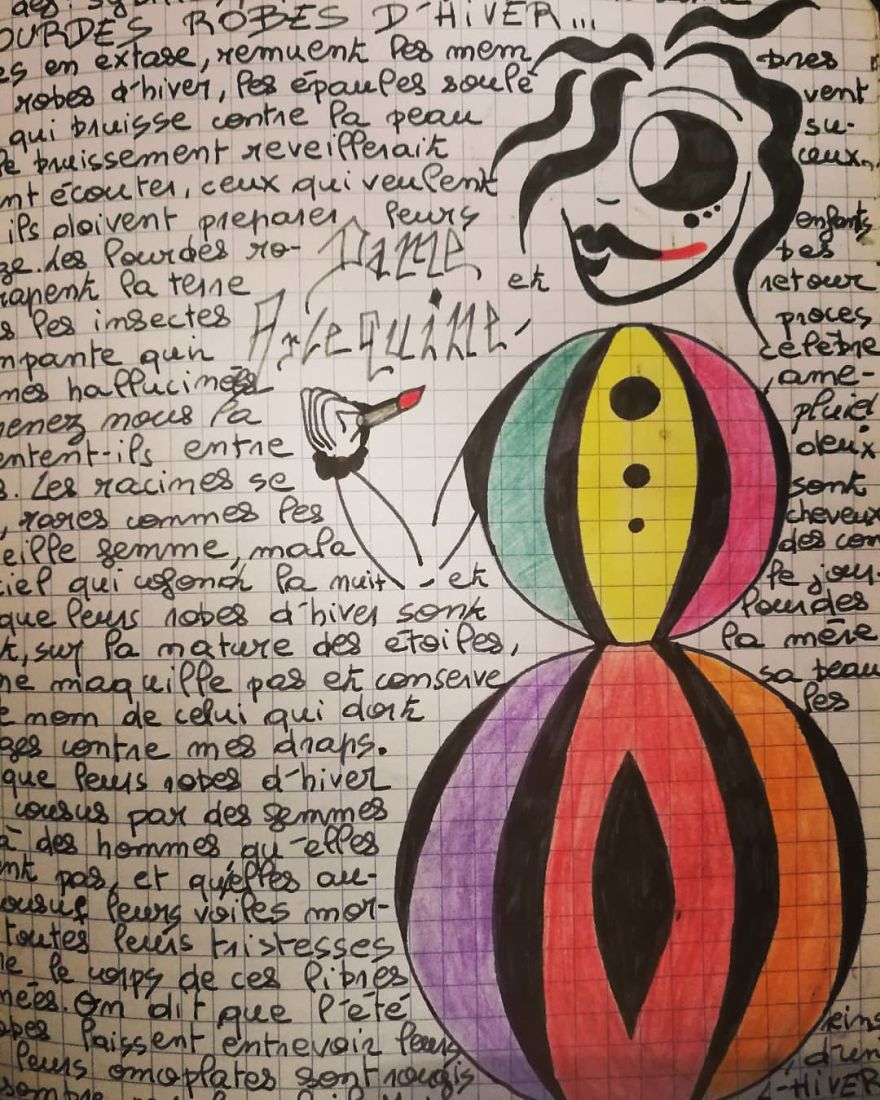 des
OURDES ROBES D'HIVER...
es en extase, remuent les mem bres
robes d'hiver, les épaules soule vent
qui bruisse contre la peau su-
le bruissement reveillerait ceux,
nt écouter, ceux qui veulent
ils doivent preparer leurs enfants
ge. Les lourdes ro- bes
Dame
et retour
rapent la terre
s les insectes proces
Arlequine
mpante qui celèbre
mes hallucinées ame-
menez nous la pluie!
entent-ils entre deux
s. Les racines se sont
, rares commes les cheveux
eille femme, mala des con
ciel qui cofond la nuit - et le jour.
que leurs robes d'hiver sont lourdes
t, sur la nature des étoiles, la mère
ne maquille pas et conserve sa beau
e nom de celui qui dort les
ges contre mes draps.
que leurs robes d'hiver
cousus par des femmes
à des hommes qu'elles
nt pas, et qu'elles au-
ousus leurs voiles mor-
toutes leurs tristesses
e le corps de ces libres
nées. On dit que l'été
obes laissent entrevoir leurs reins
leurs omoplates sont rougis d'un
sombre L'HIVER